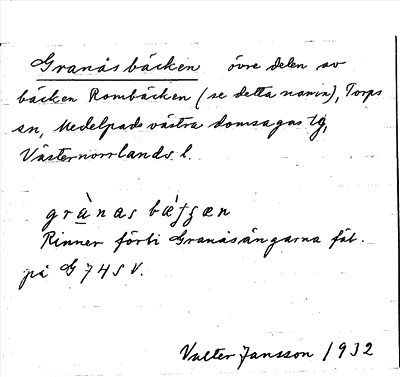 Granåsbäcken övre delen av
bäcken Rombäcken (se detta namn), Torps
sn, Medelpads västra domsagas tg,
Västernorrlands l.
grànas bæ̀ʃʃæn
Rinner förbi Granåsängarna fäb.
på G 74 S V.
Valter Jansson 1932